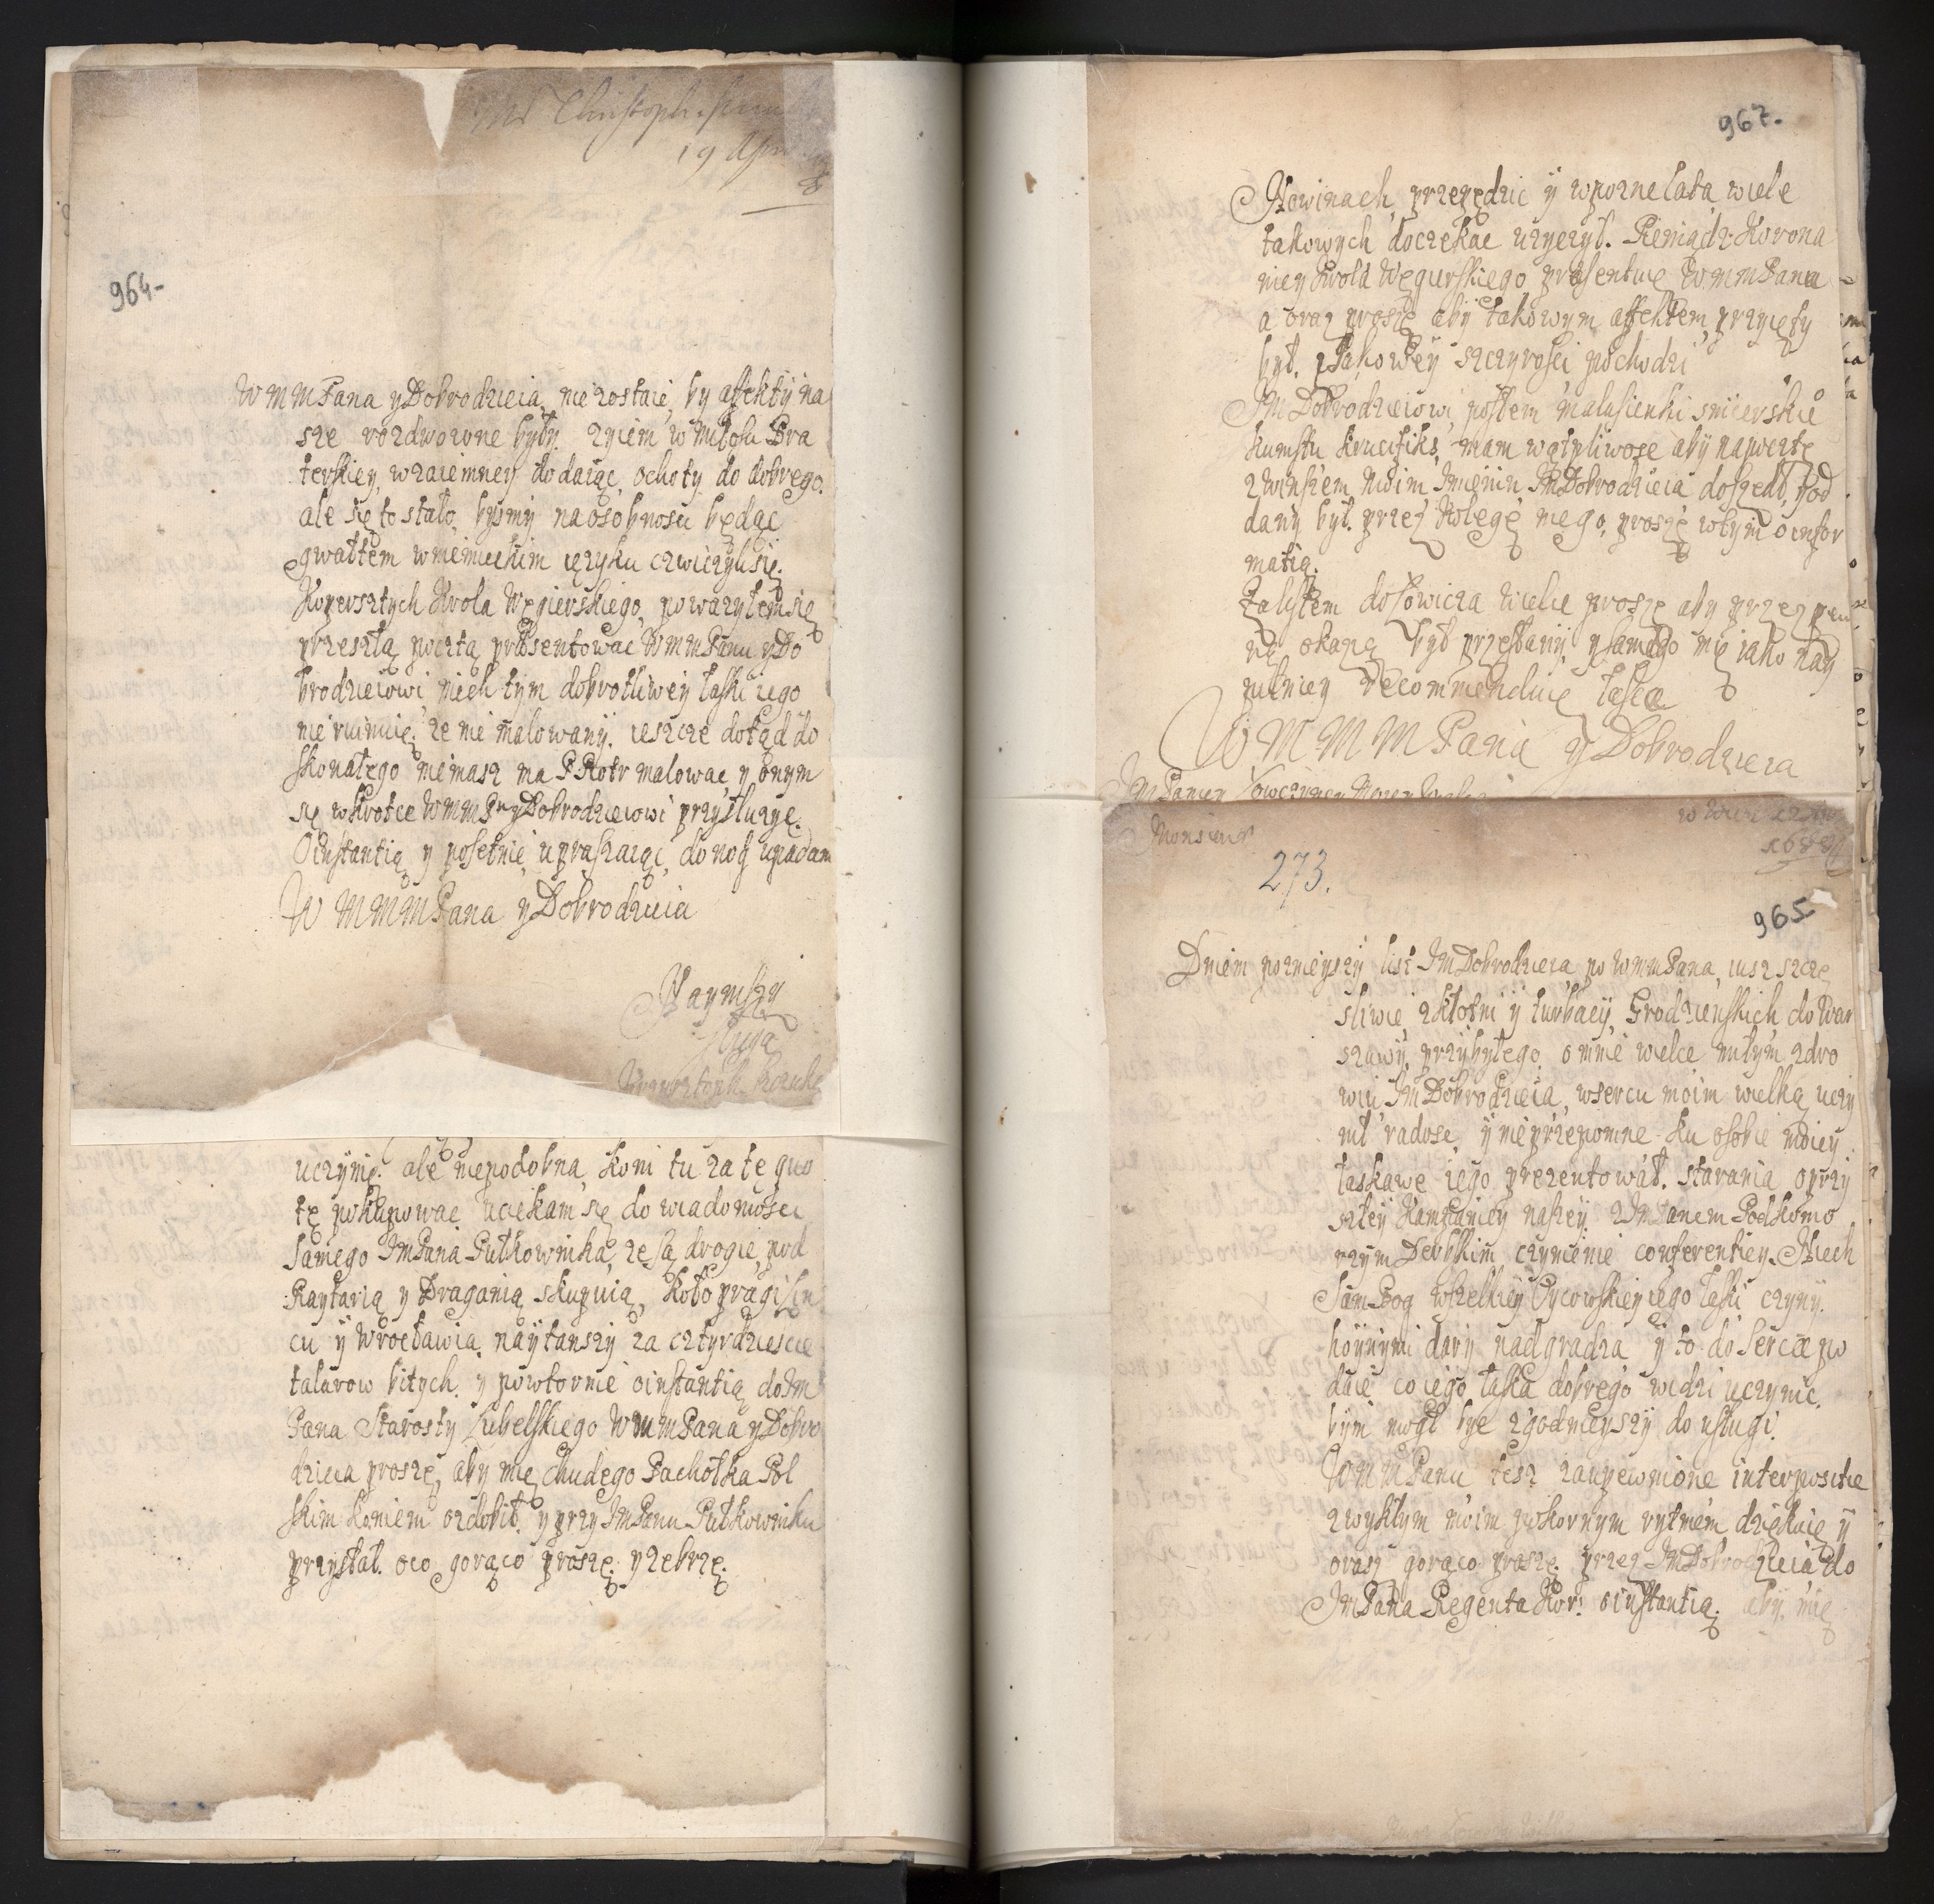 Christoph
19
964
W M M Pana y Dobrodzieia, nie zostaie, by affekty na
sze rozdwoione były. zyiem w Miłosci Bra
terskiey, wzaiemney dodaiąc, ochoty do dobrego.
ale się to stało, bysmy na osobnosci będąc
gwałtem w niemieckim ięzyku czwiczyli się.
Kopersztych Krola Węgierskiego, powazyłem się
przeszłą pocztą präsentowac WMMPanu y Do
brodzieiowi, niech tym dobrotliwey łaski iego
nie ruinuię. ze nie malowany. ieszcze dotąd do
skonałego niemasz ma P Piotr malowac, y onym
się wkrotce WMMP y Dobrodzieiowi przysłuzyc.
O instantią y posetnie, upraszaiąc, do nog upadam
W M M M Pana y Dobrodzieia
Nayniszy
Sługa
uczynię. ale niepodobna, koni tu za te quo
tę pokupowac uciekam się do wiadomosci
samego Jm Pana Pułkownika, ze są drogie, pod
Raytarią y Draganią skupuią, koło Pragi
cu y Wrocławia naytanszy za cztyrdziescie
talarow bitych. y powtornie o instantią do Jm
Pana Starosty Lubelskiego WMMPana y Dobro
dzieia proszę, aby mię chudego Pachołka Pol
skim koniem ozdobił. y przy Jm Panu Pułkowniku
przystał. oco gorąco proszę. y zebrzę.
967.
Nowinach, przepędzic y wpozne lata, wiele
takowych doczekac uzyczył. Pieniądz Korona
niey Krola Węgierskiego präsentuię WMMPana
a oraz proszę aby takowym affektem, przyięty
był. z Jakowey szczyrosci pochodzi
Jm Dobrodzieiowi, posłem malusienki snicerskie
kunsztu Krucifiks, mam wątpliwosc aby na poczte
z winszem moim Imieniu Jm Dobrodzieia doszedł, pod
dany był. przez Kolegę mego, proszę w tym o infor
matią.
Załisłem do Łowicza wielce proszę aby przez pew
ną okazią był przesłany y samego mię iako nay
pilniey recommenduię łasce
W M M M Pana y Dobrodzieia
Monsieur
273.
965
Dniem poznieyszy list Jm Dobrodzieia, po WMMPana, iusz szczę
sliwie, z kłotni y turbacy, Grodzienskich, do War
szawy, przybyłego, o mnie wielce miłym zdro
wiu, Jm Dobrodzieia, w sercu moim wielką uczy
nił radosc, y nieprzepomne ku osobie moiey
łaskawe iego prezentował. starania o przy
szłey Kampaniey naszey. z Jm Panem Podkomo
rzym Derbskim czynienie conferentiey. Niech
Sam Bog wszelkiey Oycowskiey iego łaski czyny.
hoynymi dary nadgradza y to do serca po
daie co iego łaska dobrego widzi uczynic.
bym mogł byc zgodnieyszy do usługi.
WMMPanu tesz zaupewnione interpositie
zwykłym moim pokornym rytmem dziękuię y
orasz gorąco proszę. przez Jm Dobrodzieia do
Jm Pana Regenta Kor: o instantią. aby mię